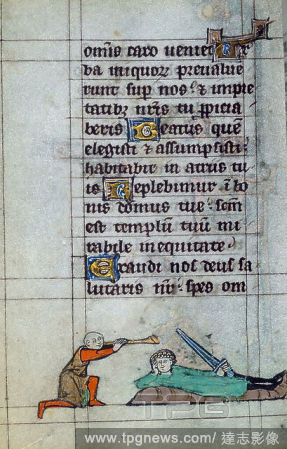 omīs caro veniet Ver
ba iniquoꝝ prevalue
runt sup nos: & impie
tatibꝫ nr̄is tu ppicia
beris Beatus quē
elegisti & assumpsisti:
habitabit in atriis tu
is Replebimur ī bo
nis domus tue: scm̄
est templū tuū mi
rabile in equitate
Exaudi nos deus sa
lutaris spes om
TPG
www.tpgnews.com/達志影像